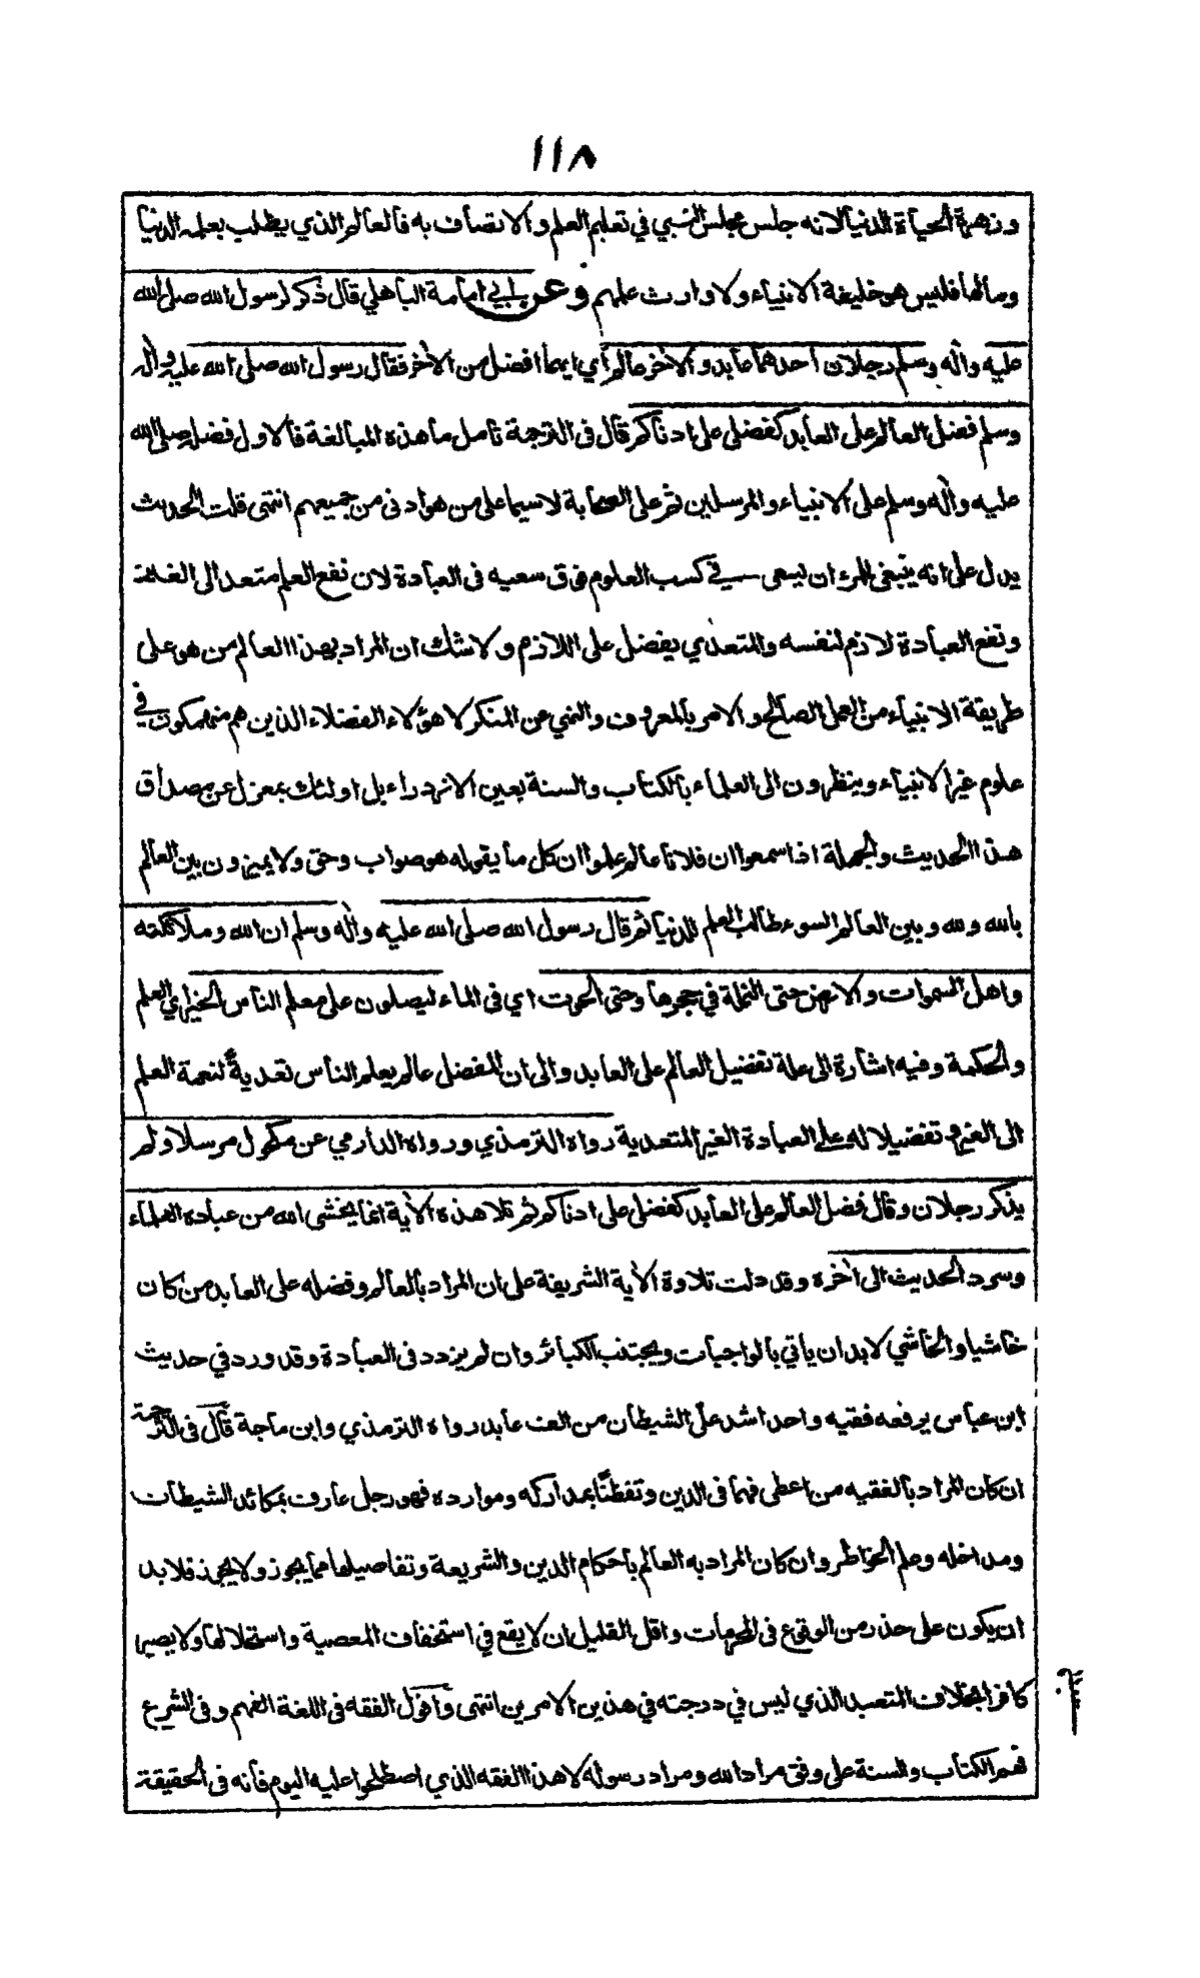 ١١٨
وزهرة الحياة الدنيا لانه جلس مجلس النبي في تعليم العلم والاتصاف به فالعالم الذي يطلب بعلمه الدنيا
ومالها فليس هو خليفة الانبياء ولا وارث علمهم وعن ابي امامة الباهلي قال ذكر لرسول الله صلى الله
عليه واله وسلم رجلان احدهما عابد والاخر عالم أي ايهما افضل من الاخر فقال رسول الله صلى الله عليه واله
وسلم فضل العالم على العابد كفضلي على ادناكم قال في الترجمة تامل ما هذه المبالغة فالاول فضله صلى الله
عليه واله وسلم على الانبياء والمرسلين ثم على الصحابة لا سيما على من هو ادنى من جميعهم انتهى قلت الحديث
يدل على انه ينبغي للمرء ان يسعى في كسب العلوم فوق سعيه في العبادة لان نفع العلم متعد الى الغير
ونفع العبادة لازم لنفسه والمتعدي يفضل على اللازم ولا شك ان المراد بهذا العالم من هو على
طريقة الانبياء من العمل الصالح والامر بالمعروف والنهي عن المنكر لا هؤلاء الفضلاء الذين هم منهمكون في
علوم غير الانبياء وينظرون الى العلماء بالكتاب والسنة بعين الازدراء بل اولئك بمعزل عن مصداق
هذا الحديث والجهلة اذا سمعوا ان فلانا عالم علموا ان كل ما يقوله هو صواب وحق ولا يميزون بين العالم
بالله ولله وبين العالم السوء طالب العلم للدنيا ثم قال رسول الله صلى الله عليه واله وسلم ان الله وملائكته
واهل السموات والارض حتى النملة في جحرها وحتى الحوت اي في الماء ليصلون على معلم الناس الخير اي العلم
والحكمة وفيه اشارة الى علة تفضيل العالم على العابد والى ان المفضل عالم يعلم الناس تعدية لنعمة العلم
الى الغير وتفضيلا له على العبادة الغير المتعدية رواه الترمذي ورواه الدارمي عن مكحول مرسلا ولم
يذكر رجلان وقال فضل العالم على العابد كفضلي على ادناكم ثم تلا هذه الاية انما يخشى الله من عباده العلماء
وسرد الحديث الى اخره وقد دلت تلاوة الاية الشريفة على ان المراد بالعالم وفضله على العابد من كان
خاشيا والخاشي لا بد ان ياتي بالواجبات ويجتنب الكبائر وان لم يزدد في العبادة وقد ورد في حديث
ابن عباس يرفعه فقيه واحد اشد على الشيطان من الف عابد رواه الترمذي وابن ماجة قال في الترجمة
ان كان المراد بالفقيه من اعطى فهما في الدين وتفطنا بمداركه وموارده فهو رجل عارف بمكائد الشيطان
ومداخله وعلم الخواطر وان كان المراد به العالم باحكام الدين والشريعة وتفاصيلها مما يجوز ولا يجوز فلا بد
ان يكون على حذر من الوقوع في المحرمات واقل القليل ان لا يقع في استخفاف المعصية واستحلالها ولا يصير
كافرا بخلاف المتعبد الذي ليس في درجته في هذين الامرين انتهى واقول الفقه في اللغة الفهم وفي الشرع
فهم الكتاب والسنة على وفق مراد الله ومراد رسوله لا هذا الفقه الذي اصطلحوا عليه اليوم فانه في الحقيقة